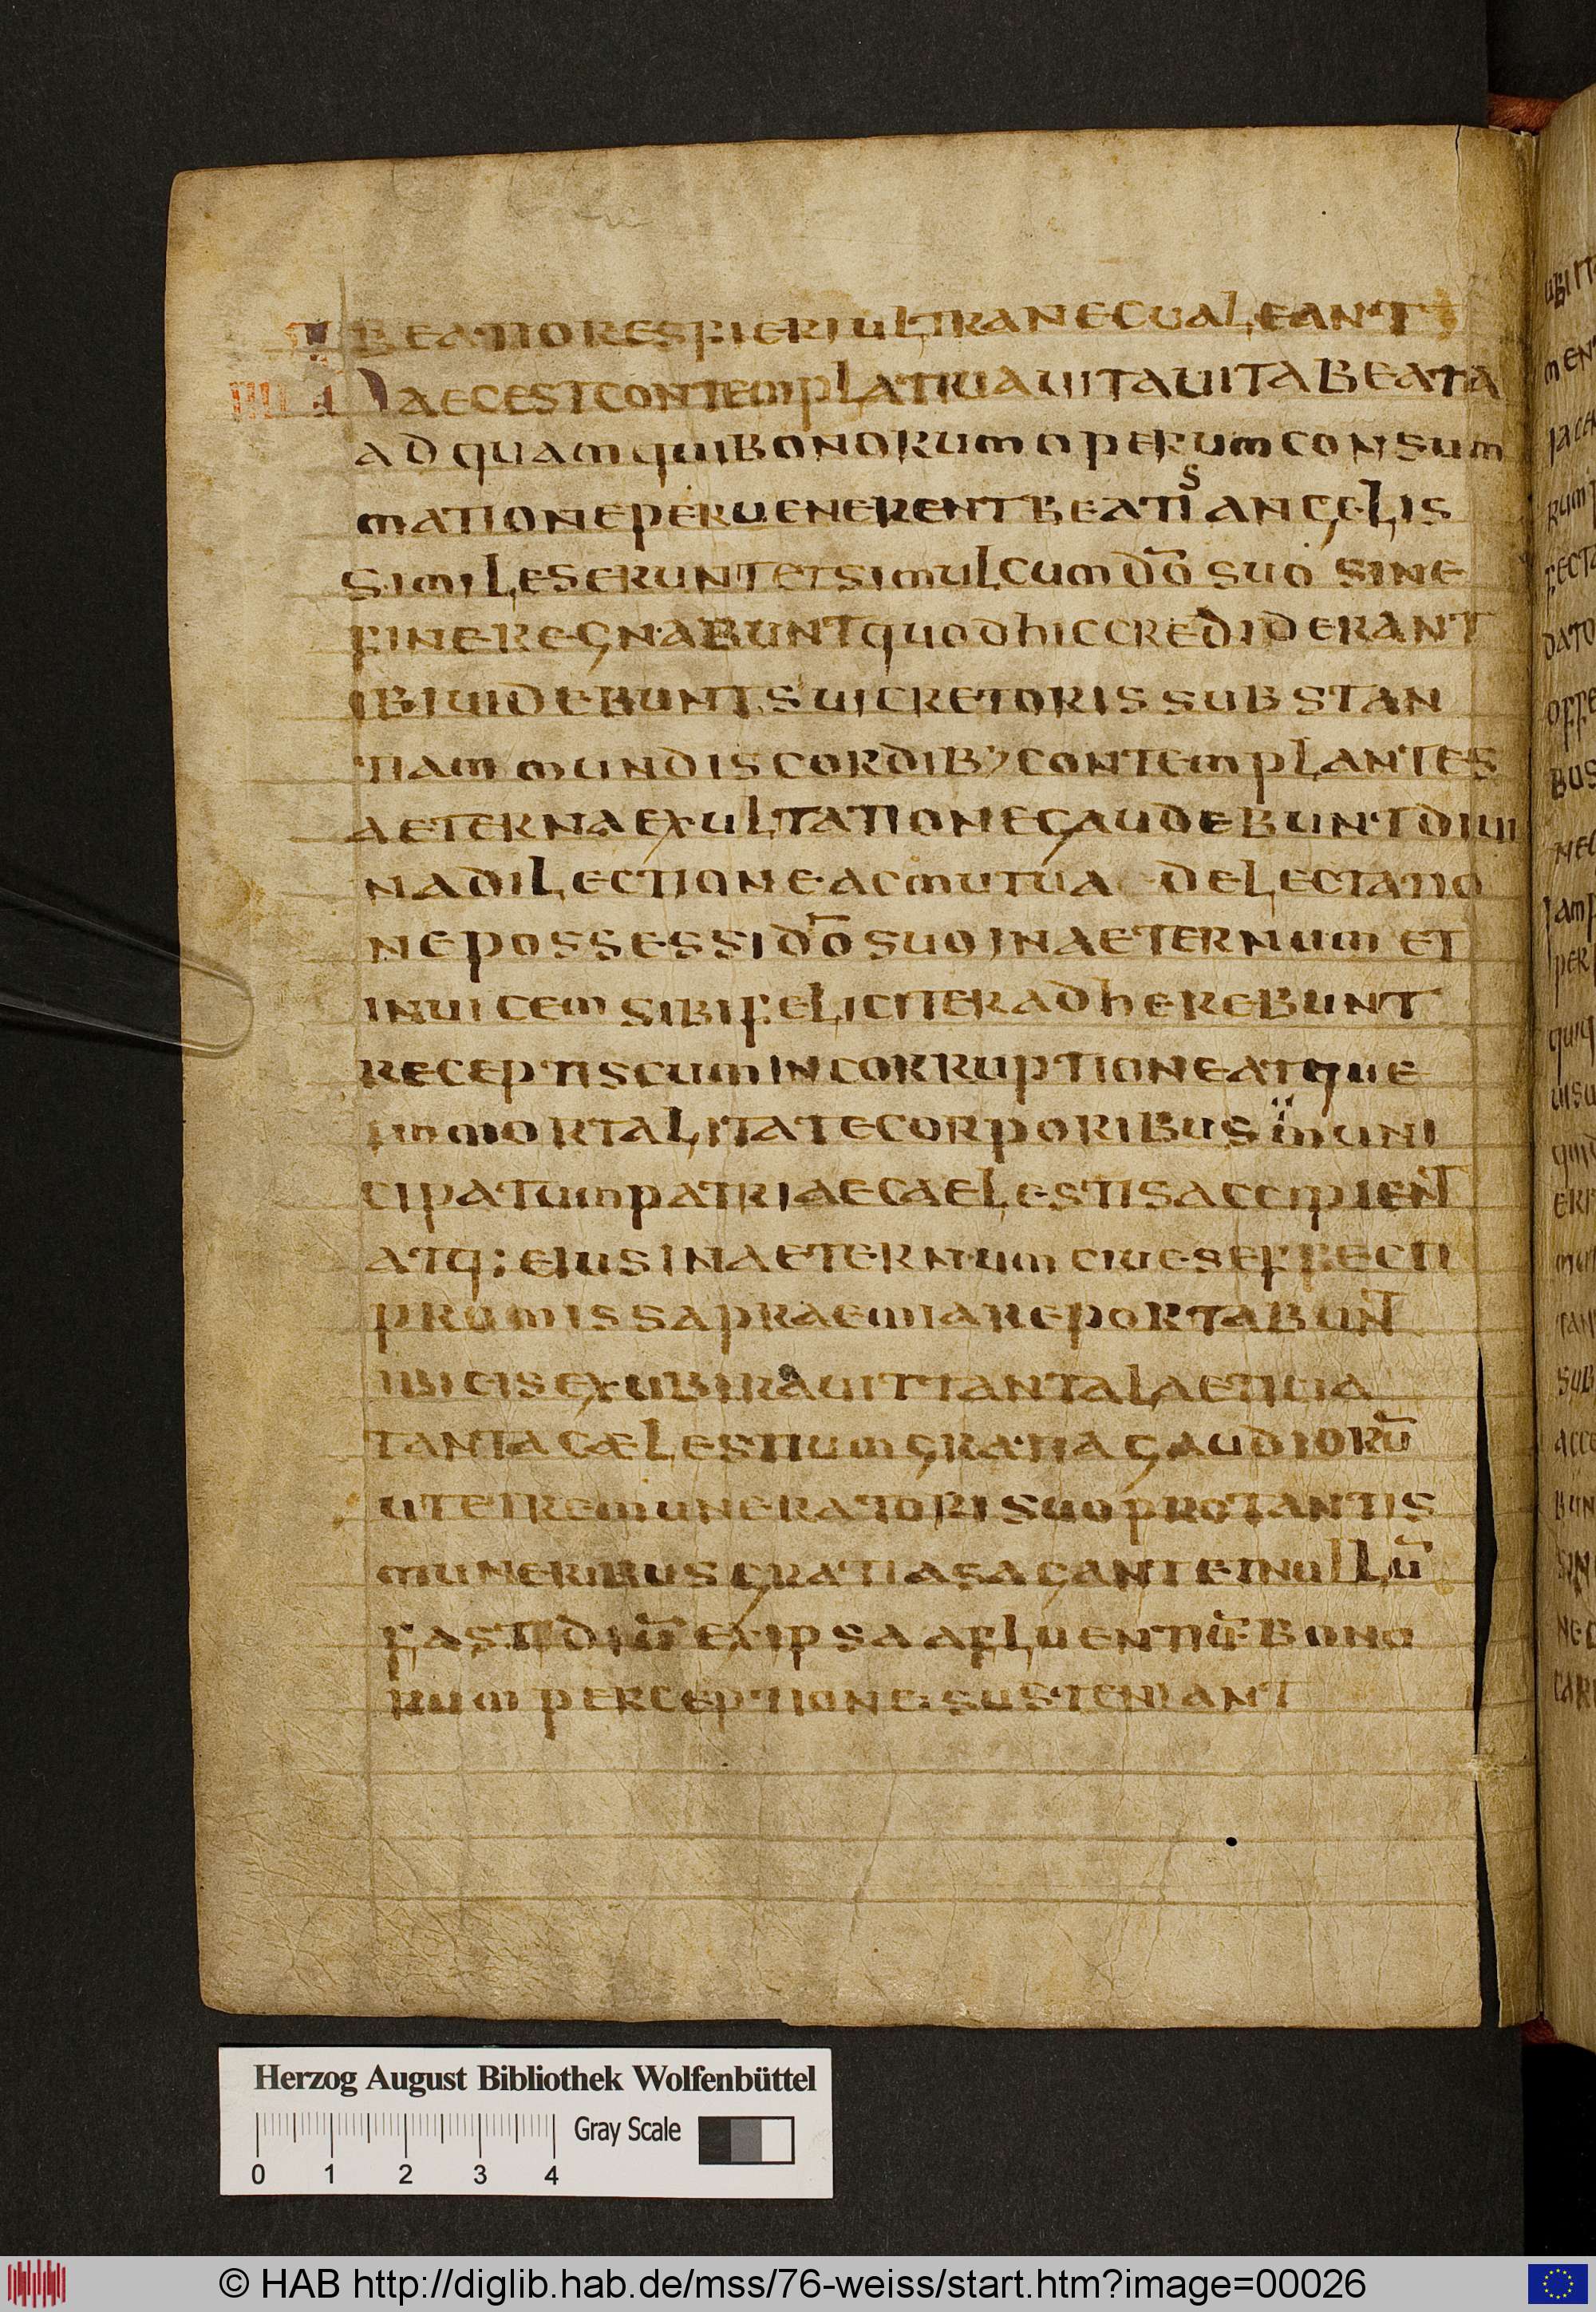 BEATIORES FIERI ULTRA NEC UALEANT
IIII HAEC EST CONTEMPLATIUA UITA UITA BEATA
AD QUAM QUI BONORUM OPERUM CONSUM
MATIONE PERUENERENT BEATIS ANGELIS
SIMILES ERUNT ET SIMUL CUM DŌ SUO SINE
FINE REGNABUNT QUOD HIC CREDIDERANT
IBI UIDEBUNT SUI CRETORIS SUBSTAN
TIAM MUNDIS CORDIB; CONTEMPLANTES
AETERNA EXULTATIONE GAUDEBUNT DIUI
NA DILECTIONE AC MUTUA DELECTATIO
NE POSSESSI DŌ SUO IN AETERNUM ET
INUICEM SIBI FELICITER ADHEREBUNT
RECEPTIS CUM INCORRUPTIONE ATQUE
IMMORTALITATE CORPORIBUS MUNI
CIPATUM PATRIAE CAELESTIS ACCIPIENT
ATQ; EIUS IN AETERNUM CIUES EFFECTI
PROMISSA PRAEMIA REPORTABUNT
IBI EIS EXUBIRAUIT TANTA LAETICIA
TANTA CÆLESTIUM GRATIA GAUDIORŪ
UT ET REMUNERATORI SUO PRO TANTIS
MUNERIBUS GRATIAS AGANT ET NULLŪ
FASTIDIŪ EX IPSA AFLUENTIŪ BONO
RUM PERCEPTIONE SUSTENIANT
Herzog August Bibliothek Wolfenbüttel
Gray Scale
0 1 2 3 4
© HAB http://diglib.hab.de/mss/76-weiss/start.htm?image=00026